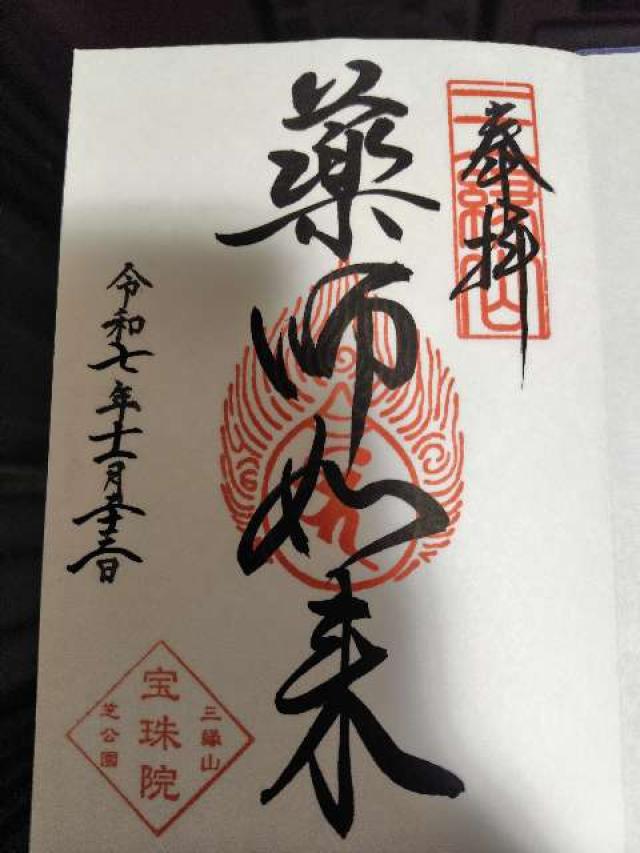 奉拝
三縁山
薬師如来
令和七年十一月廿三日
三縁山
宝珠院
芝公園